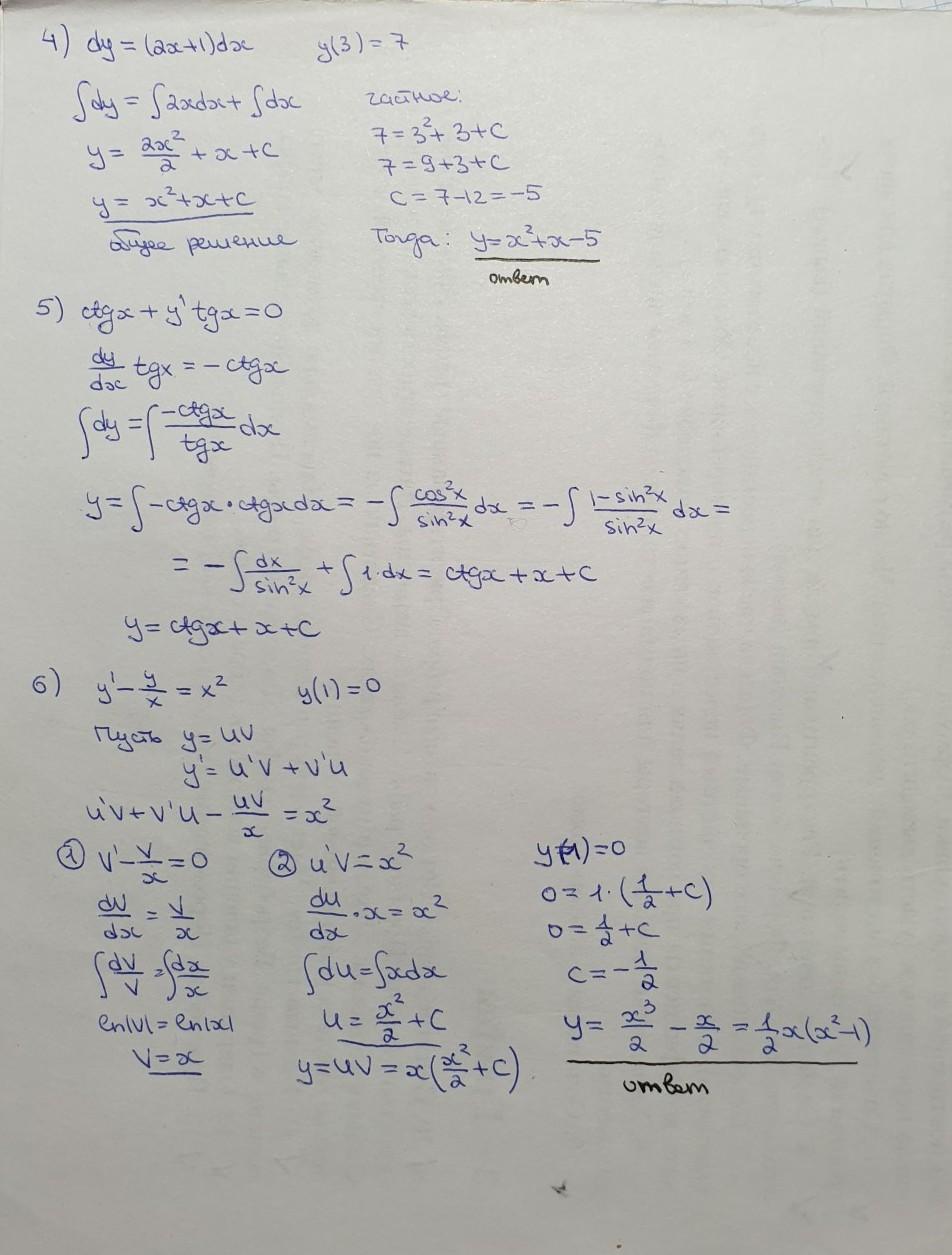 4) dy = (2x+1)dx y(3) = 7
∫dy = ∫2xdx + ∫dx
y = 2x²/2 + x + C
y = x²+x+C
общее решение
частное:
7 = 3² + 3 + C
7 = 9+3+C
C = 7-12 = -5
Тогда: y = x²+x-5
ответ
5) ctgx + y' tgx = 0
dy/dx tgx = - ctgx
∫dy = ∫ -ctgx/tgx dx
y = ∫ -ctgx · ctgxdx = - ∫ cos²x/sin²x dx = - ∫ 1-sin²x/sin²x dx =
= - ∫ dx/sin²x + ∫ 1·dx = ctgx + x + C
y = ctgx + x + C
6) y' - y/x = x² y(1) = 0
Пусть y = uv
y' = u'v + v'u
u'v + v'u - uv/x = x²
① v' - v/x = 0
dv/dx = v/x
∫ dv/v = ∫ dx/x
ln|v| = ln|x|
v = x
② u'v = x²
du/dx · x = x²
∫du = ∫xdx
u = x²/2 + C
y = uv = x(x²/2 + C)
y(1) = 0
0 = 1·(1/2 + C)
0 = 1/2 + C
C = - 1/2
y = x³/2 - x/2 = 1/2 x(x²-1)
ответ